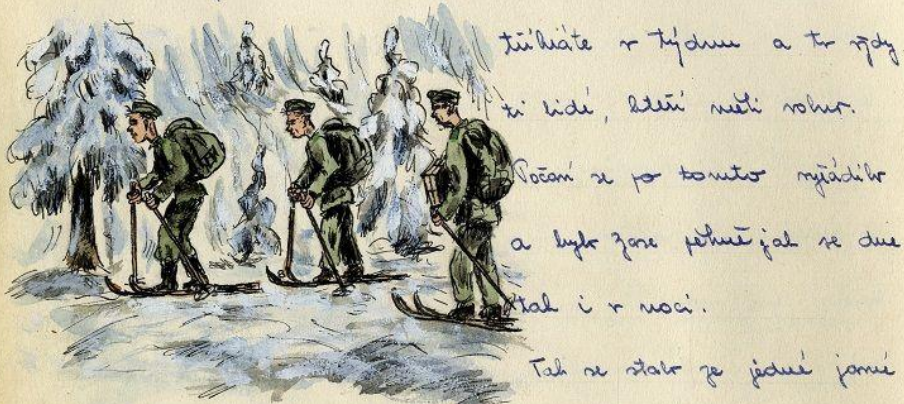 tříkráte v týdnu a to vždy
ti lidé, kteří měli volno.
Počasí se po tomto vyřádilo
a bylo zase pěkně jak ve dne
tak i v noci.
Tak se stalo že jedné jasné